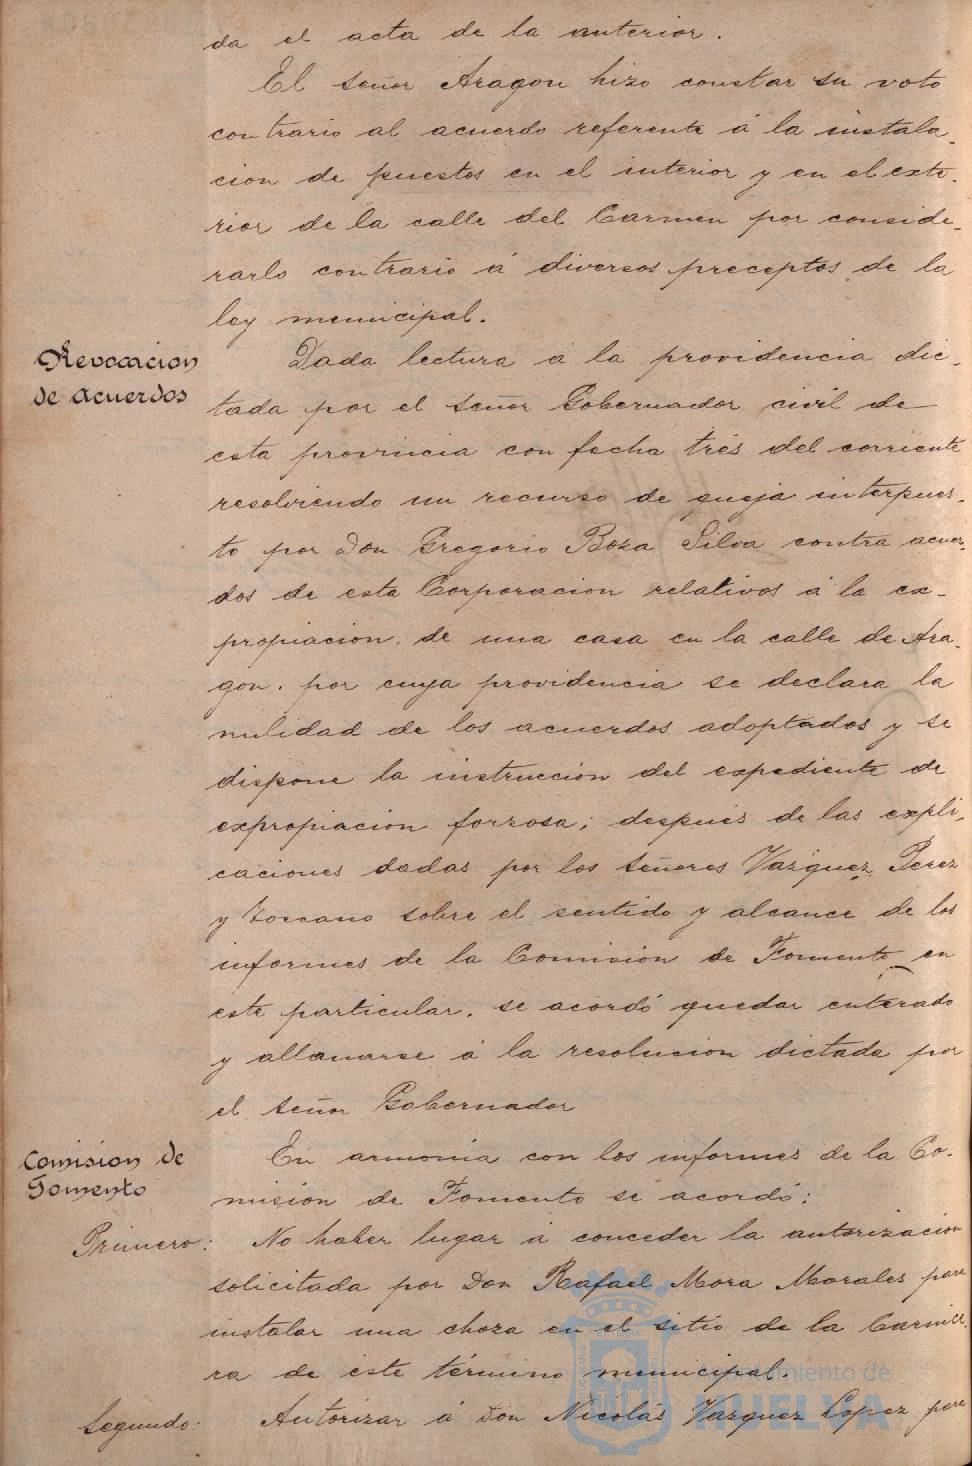 da el acta de la anterior.
El señor Aragon hizo constar su voto
contrario al acuerdo referente á la instala-
cion de puestos en el interior y en el exte-
rior de la calle del Carmen por conside-
rarlo contrario á diversos preceptos de la
ley municipal.
Revocacion
de acuerdos
Dada lectura á la providencia dic-
tada por el señor Gobernador civil de
esta provincia con fecha tres del corriente
resolviendo un recurso de queja interpues-
to por Don Gregorio Boza Silva contra acuer-
dos de esta Corporacion relativos á la ex-
propiacion de una casa en la calle de Ara-
gon. por cuya providencia se declara la
nulidad de los acuerdos adoptados y se
dispone la instrucción del expediente de
expropiacion forzosa; después de las expli-
caciones dadas por los señores Vazquez, Perez
y Toscano sobre el sentido y alcance de los
informes de la Comision de Fomento en
este particular, se acordó quedar enterado
y allanarse á la resolucion dictada por
el señor Gobernador
Comision de
Fomento
En armonía con los informes de la Co-
misión de Fomento se acordó:
Primero: No haber lugar á conceder la autorizacion
solicitada por Don Rafael Mora Morales para
instalar una choza en el sitio de la Carnice-
ra de este término municipal.
Segundo. Autorizar á Don Nicolás Vazquez Lopez para
Ayuntamiento de
HUELVA